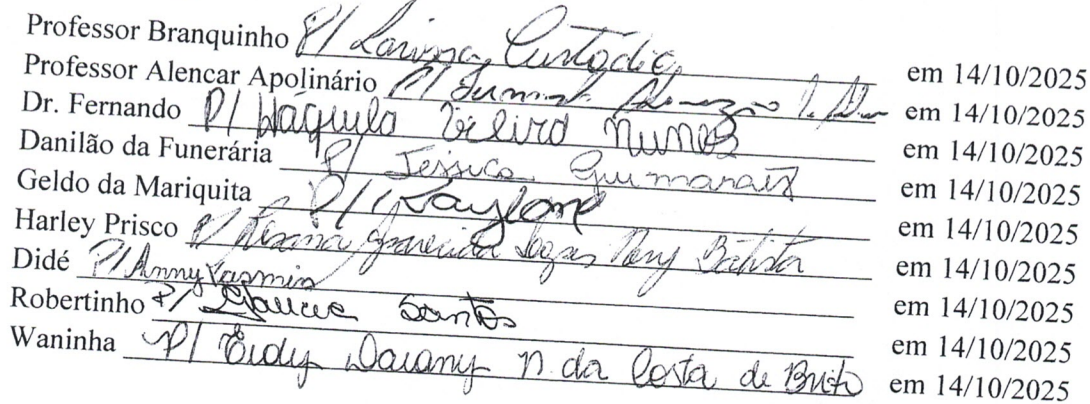 Professor Branquinho P/ Larissa Custodio em 14/10/2025
Professor Alencar Apolinário P/ em 14/10/2025
Dr. Fernando P/ Wáquila Vieira Nunes em 14/10/2025
Danilão da Funerária P/ Jessica Guimarães em 14/10/2025
Geldo da Mariquita P/ Kaylone em 14/10/2025
Harley Prisco P/ Rosana Aparecida Nery Batista em 14/10/2025
Didé P/ Anny Yasmin em 14/10/2025
Robertinho P/ Santos em 14/10/2025
Waninha P/ Eidy Daiany n. da Costa de Brito em 14/10/2025